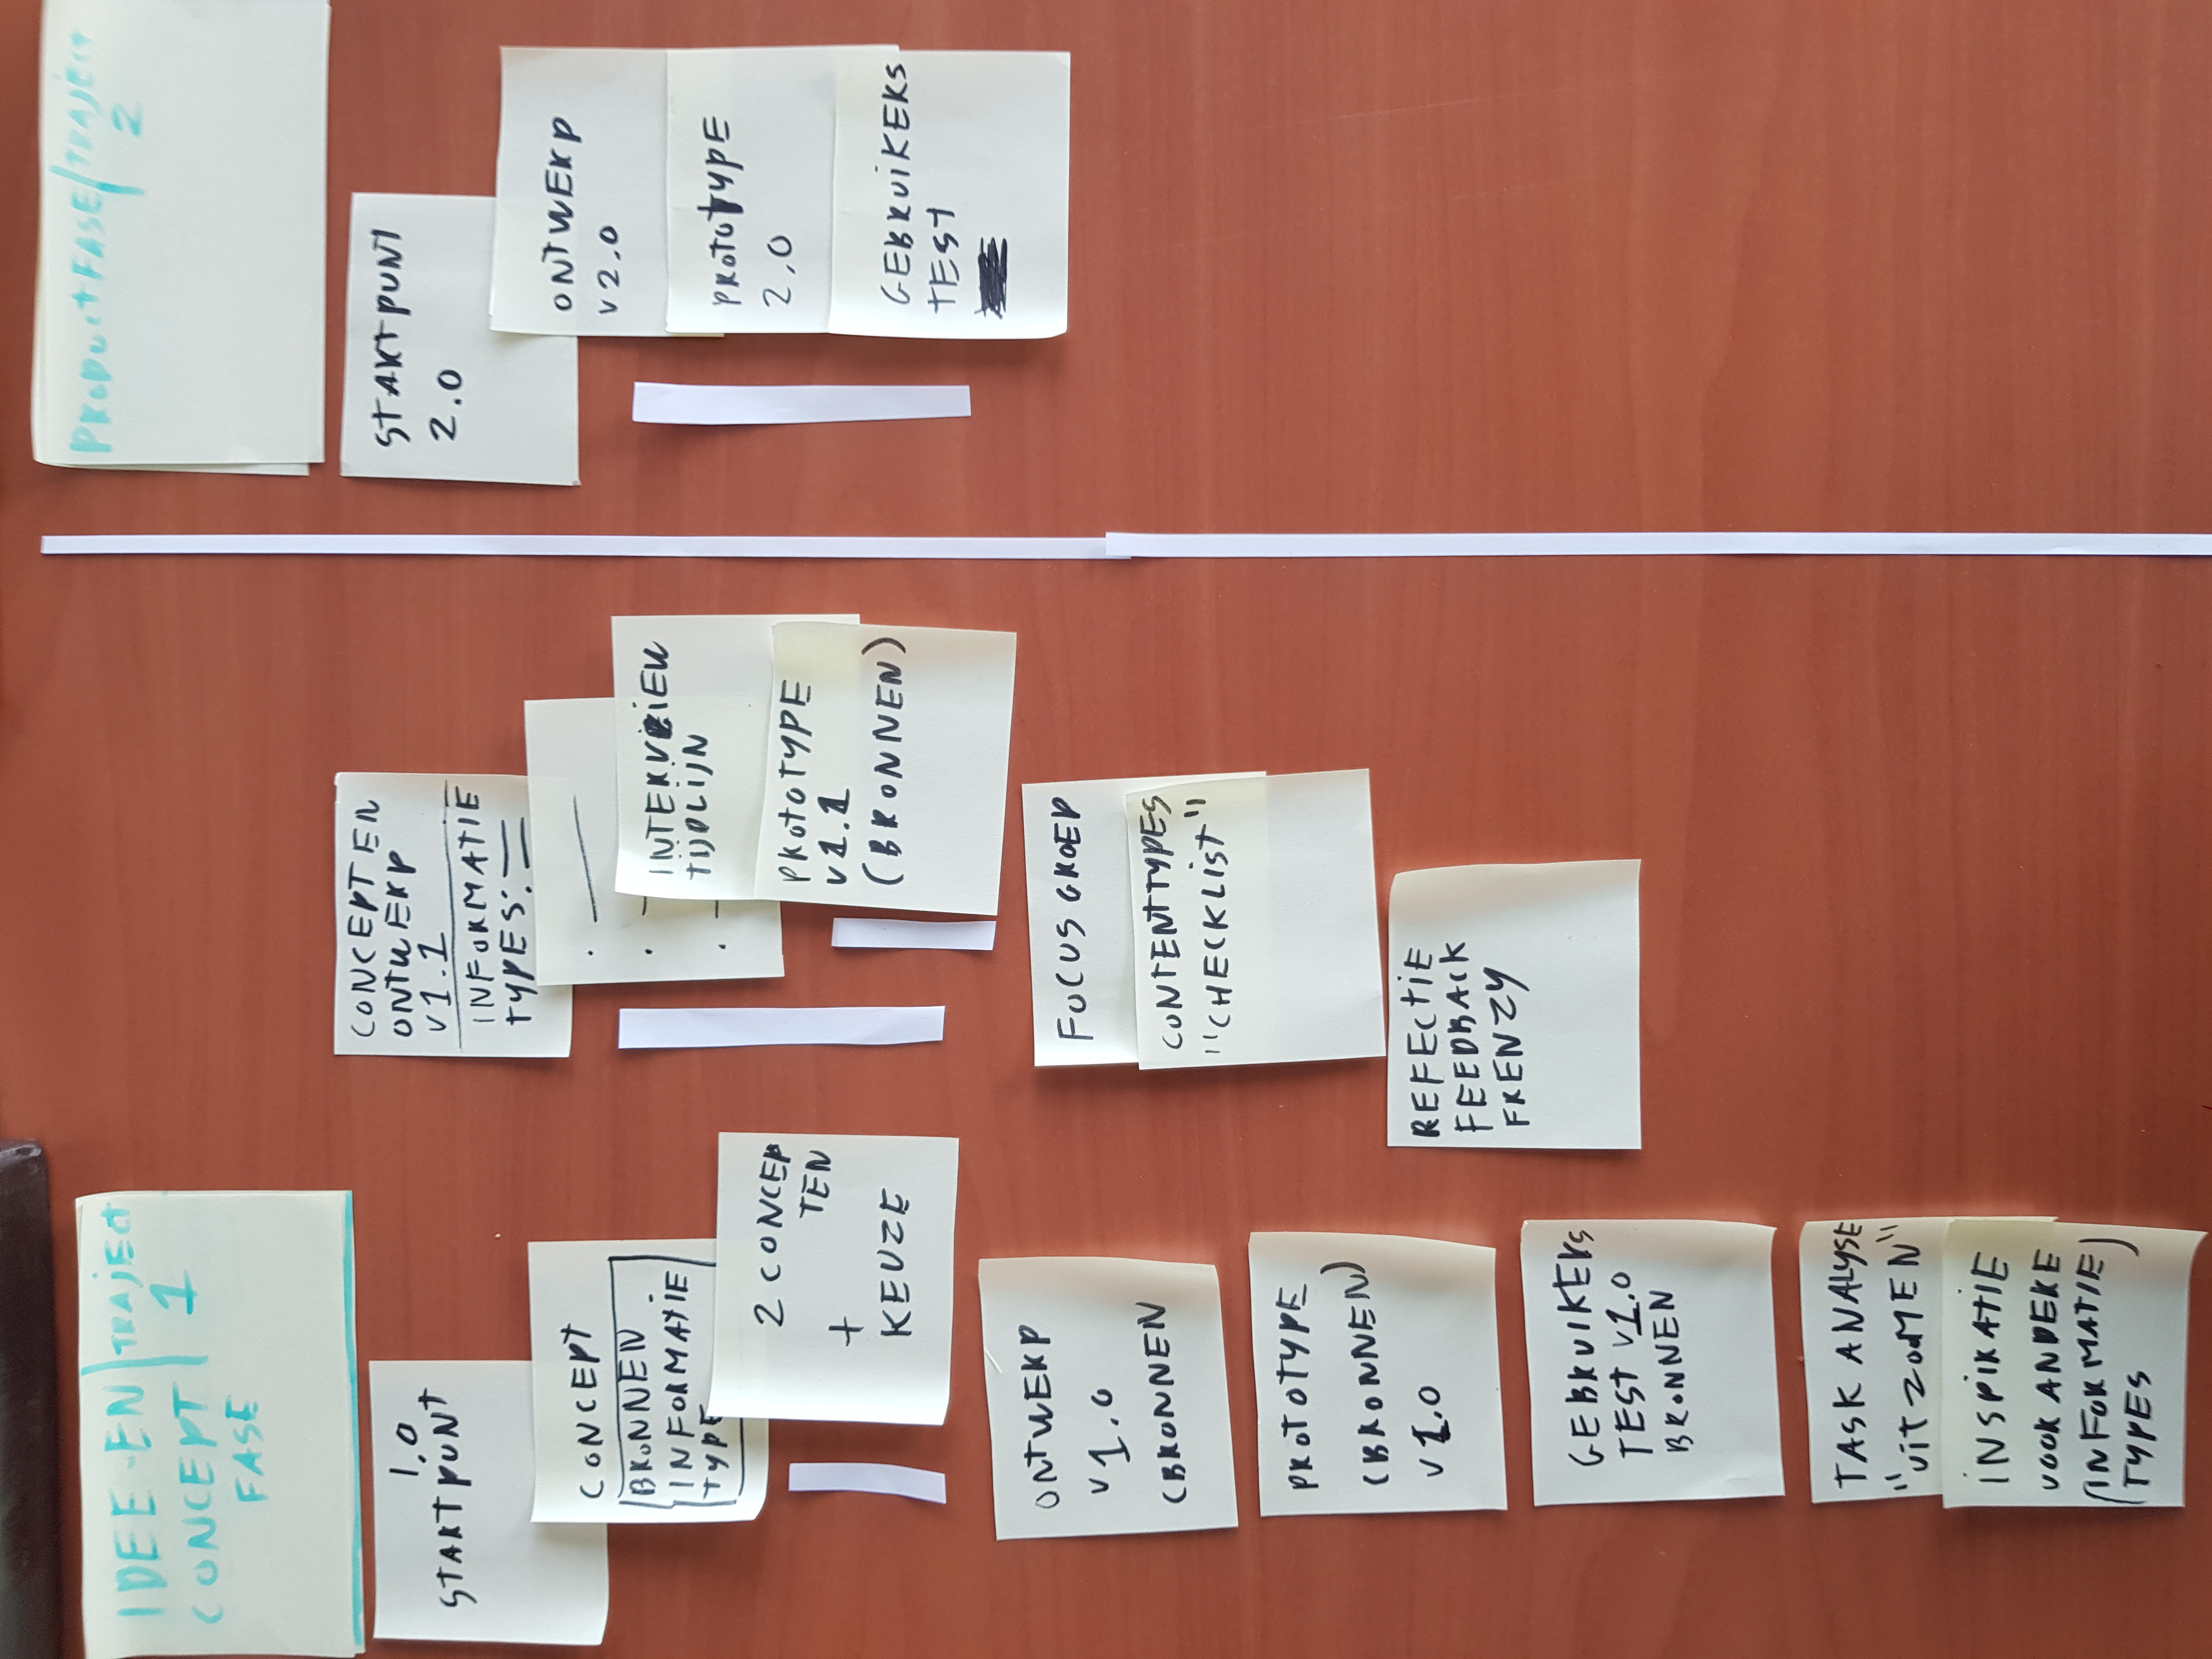 IDEE-EN
CONCEPT
FASE
TRAJECT
1
1.0
STARTPUNT
CONCEPT
BRONNEN
INFORMATIE
TYPE
2 CONCEP
TEN
+
KEUZE
ONTWERP
v1.0
(BRONNEN
PROTOTYPE
(BRONNEN)
v1.0
GEBRUIKERS
TEST v1.0
BRONNEN
TASK ANALYSE
"UITZOOMEN"
INSPIRATIE
VOOR ANDERE
(INFORMATIE)
TYPES
CONCEPT EN
ONTWERP
v1.1
INFORMATIE
TYPES:
INTERVIEW
TIJDLIJN
PROTOTYPE
v1.1
(BRONNEN)
FOCUS GROEP
CONTENTTYPES
"CHECKLIST"
REFECTIE
FEEDBACK
FRENZY
PRODUCTFASE/TRAJECT
2
STARTPUNT
2.0
ONTWERP
v2.0
PROTOTYPE
2.0
GEBRUIKERS
TEST